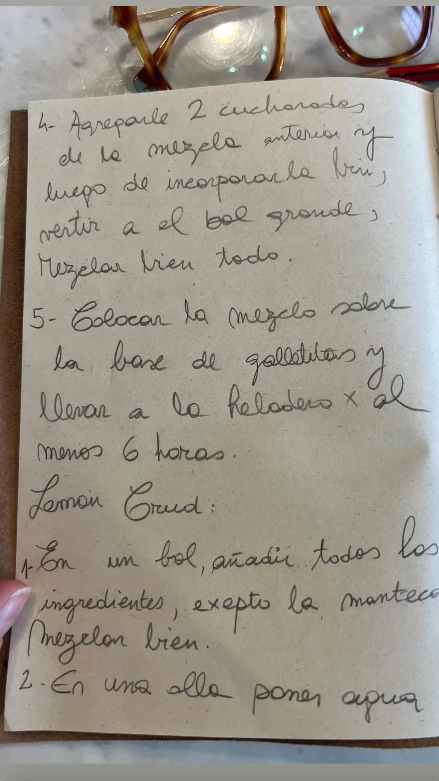 4- Agregarle 2 cucharadas
de la mezcla anterior y
luego de incorporarla bien,
vertir a el bol grande,
Mezclar bien todo.
5- Colocar la mezcla sobre
la base de galletitas y
llevar a la heladera x al
menos 6 horas.
Lemon Crud:
1- En un bol, añadir todos los
ingredientes, exepto la manteca
Mezclar bien.
2- En una olla poner agua